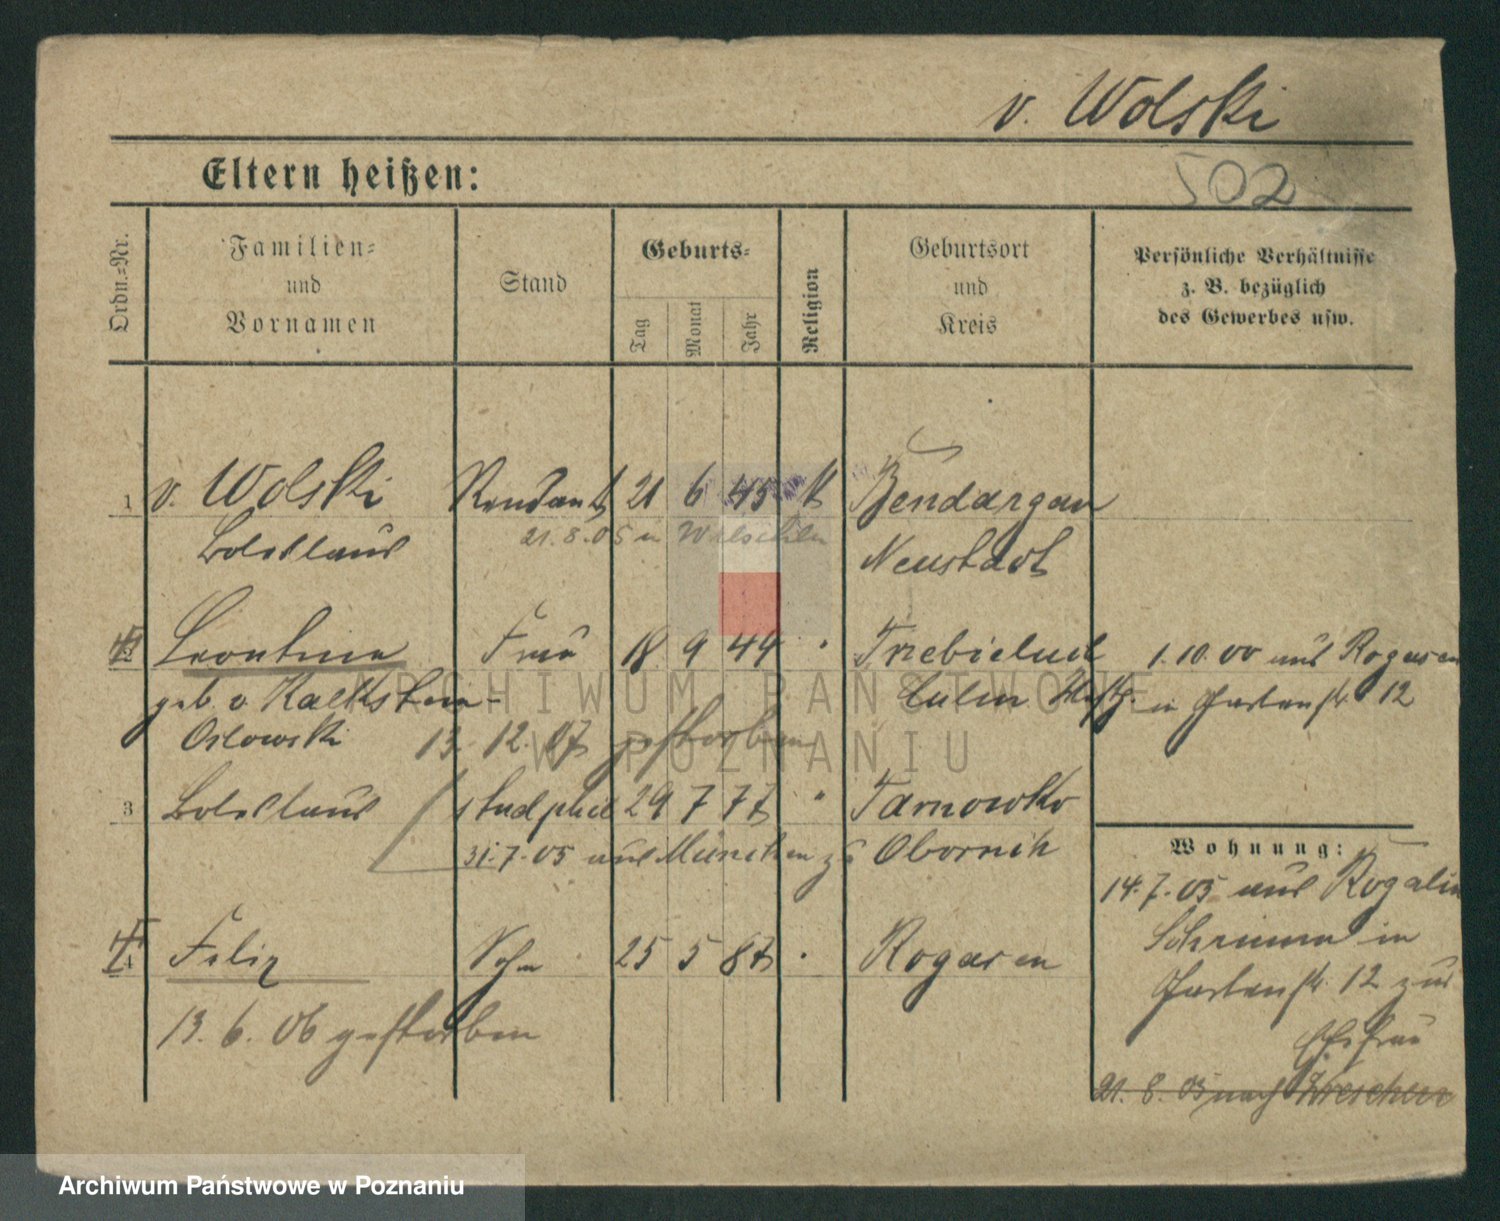 v. Wolski
502
Eltern heißen:
Ordn.=Nr.
Familien=
und
Vornamen
Stand
Geburts=
Tag
Monat
Jahr
Religion
Geburtsort
und
Kreis
Persönliche Verhältnisse
z. B. bezüglich
des Gewerbes usw.
1 v. Wolski Rendant 21 6 45 k Bendargau
Boleslaus 21.8.05 n Neustadt
2 Leontine Frau 18 9 44 " 
1.10.00 aus Rogasen
geb. v. Kalkstein- Culm
in Gartenstr. 12
Orlowski 13. 12. 07 gestorben
3 Boleslaus stud phil 29 7 77 " Tarnowko
31.7.05 aus München zu Obornik
4 Felix Sohn 25 5 87 " Rogasen
13. 6. 06 gestorben
Wohnung:
14.7.05 aus Rogalin
Schrimm in
Gartenstr. 12 zur
Ehefrau
21. 8. 05 nach Wreschen
ARCHIWUM PAŃSTWOWE
W POZNANIU
Archiwum Państwowe w Poznaniu